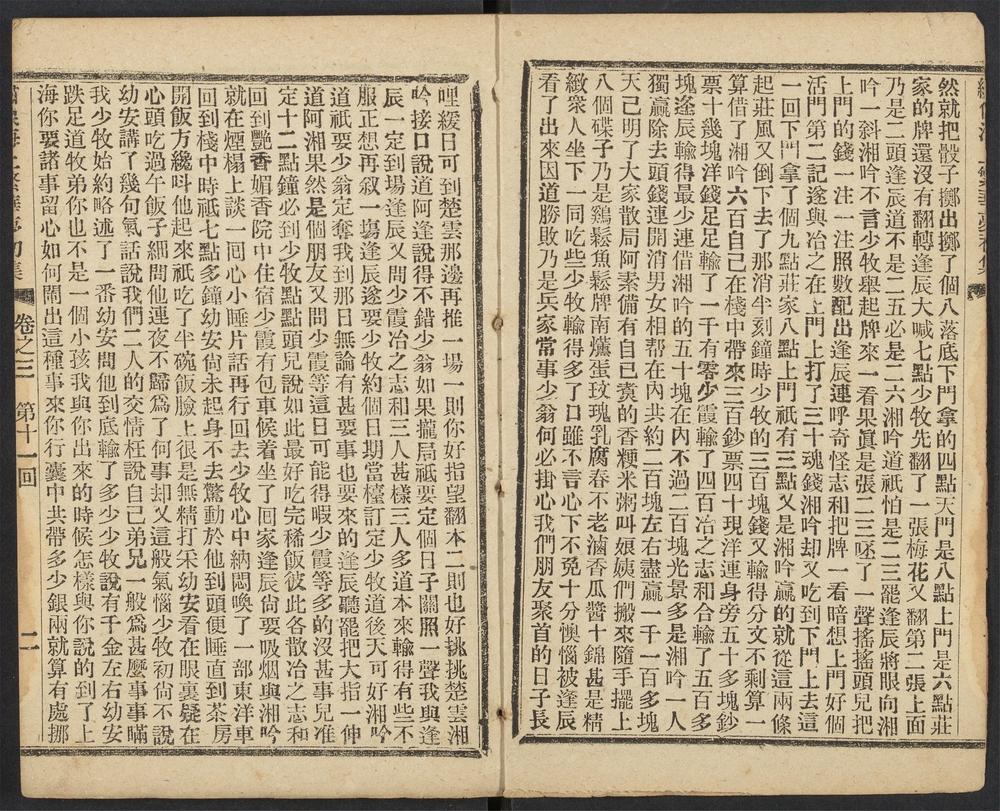 然就把骰子擲出擲了個八落底下門拿的四點天門是八點上門是六點莊
家的牌還沒有翻轉逢辰大喊七點少牧先翻了一張梅花又翻第二張上面
乃是二頭逢辰道不是二五必是二六湘吟道祇怕是二三罷逢辰將眼向湘
吟一斜湘吟不言少牧舉起牌來一看果眞是張二三呸了一聲搖搖頭兒把
上門的錢一注一注照數配出逢辰連呼奇怪志和把牌一看暗想上門好個
活門第二記遂與冶之在上門上打了三十魂錢湘吟却又吃到下門上去這
一回下門拿了個九點莊家八點上門祇有三點又是湘吟贏的就從這兩條
起莊風又倒下去了那消半刻鐘時少牧的三百塊錢又輸得分文不剩算一
算借了湘吟六百自己在棧中帶來三百鈔票四十現洋連身旁五十多塊鈔
票十幾塊洋錢足足輸了一千有零少霞輸了四百冶之志和合輸了五百多
塊逢辰輸得最少連借湘吟的五十塊在內不過二百塊光景多是湘吟一人
獨贏除去頭錢連開消男女相帮在內共約二百塊左右盡贏一千一百多塊
天已明了大家散局阿素備有自已煑的香粳米粥叫娘姨們搬來隨手擺上
八個碟子乃是鷄鬆魚鬆牌南爊蛋玫瑰乳腐春不老滷香瓜醬十錦甚是精
緻衆人坐下一同吃些少牧輸得多了口雖不言心下不免十分懊惱被逢辰
看了出來因道勝敗乃是兵家常事少翁何必掛心我們朋友聚首的日子長
哩緩日可到楚雲那邊再推一場一則你好指望翻本二則也好挑挑楚雲湘
吟接口說道阿逢說得不錯少翁如果攏局祇要定個日子關照一聲我與逢
辰一定到場逢辰又問少霞冶之志和三人甚樣三人多道本來輸得有些不
服正想再叙一塲逢辰遂要少牧約個日期當檯訂定少牧道後天可好湘吟
道祇要少翁定奪我到那日無論有甚要事也要來的逢辰聽罷把大指一伸
道阿湘果然是個朋友又問少霞等這日可能得暇少霞等多的沒甚事兒准
定十二點鐘必到少牧點點頭兒說如此最好吃完稀飯彼此各散冶之志和
回到艷香媚香院中住宿少霞有包車候着坐了回家逢辰尙要吸烟與湘吟
就在煙榻上談一囘心小睡片話再行回去少牧心中納悶喚了一部東洋車
回到棧中時祇七點多鐘幼安尙未起身不去驚動於他到頭便睡直到茶房
開飯方纔呌他起來祇吃了半碗飯臉上很是無精打采幼安看在眼裏疑在
心頭吃過午飯子細問他連夜不歸爲了何事却又這般氣惱少牧初尙不說
幼安講了幾句氣話說我們二人的交情枉說自己弟兄一般爲甚麼事事瞞
我少牧始約略述了一番幼安問他到底輸了多少少牧說有千金左右幼安
跌足道牧弟你也不是一個小孩我與你出來的時候怎樣與你說的到了上
海你要諸事留心如何鬧出這種事來你行囊中共帶多少銀兩就算有處挪
卷之三 第十一回 二